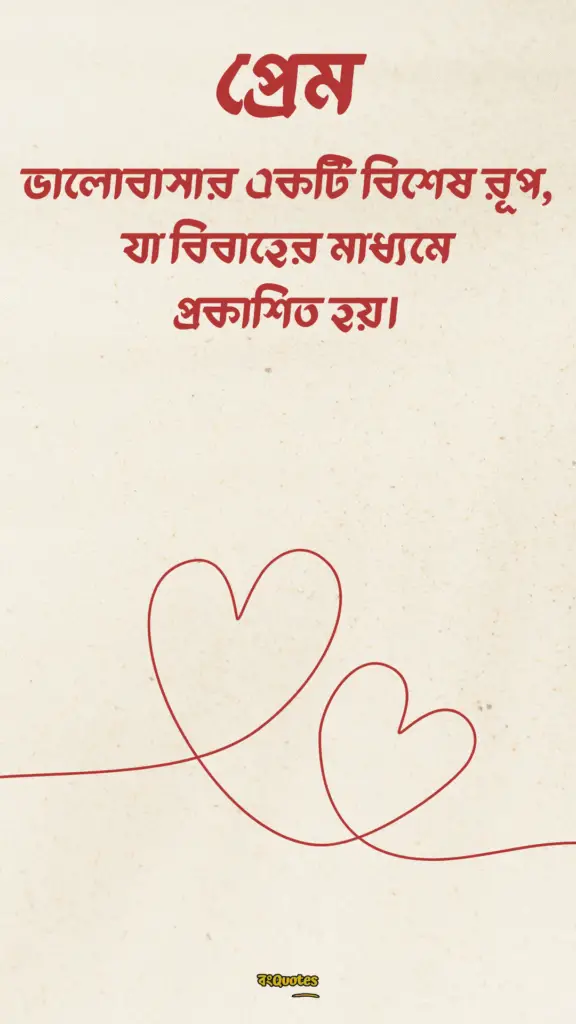 প্রেম
ভালোবাসার একটি বিশেষ রূপ,
যা বিবাহের মাধ্যমে
প্রকাশিত হয়।
বংQuotes